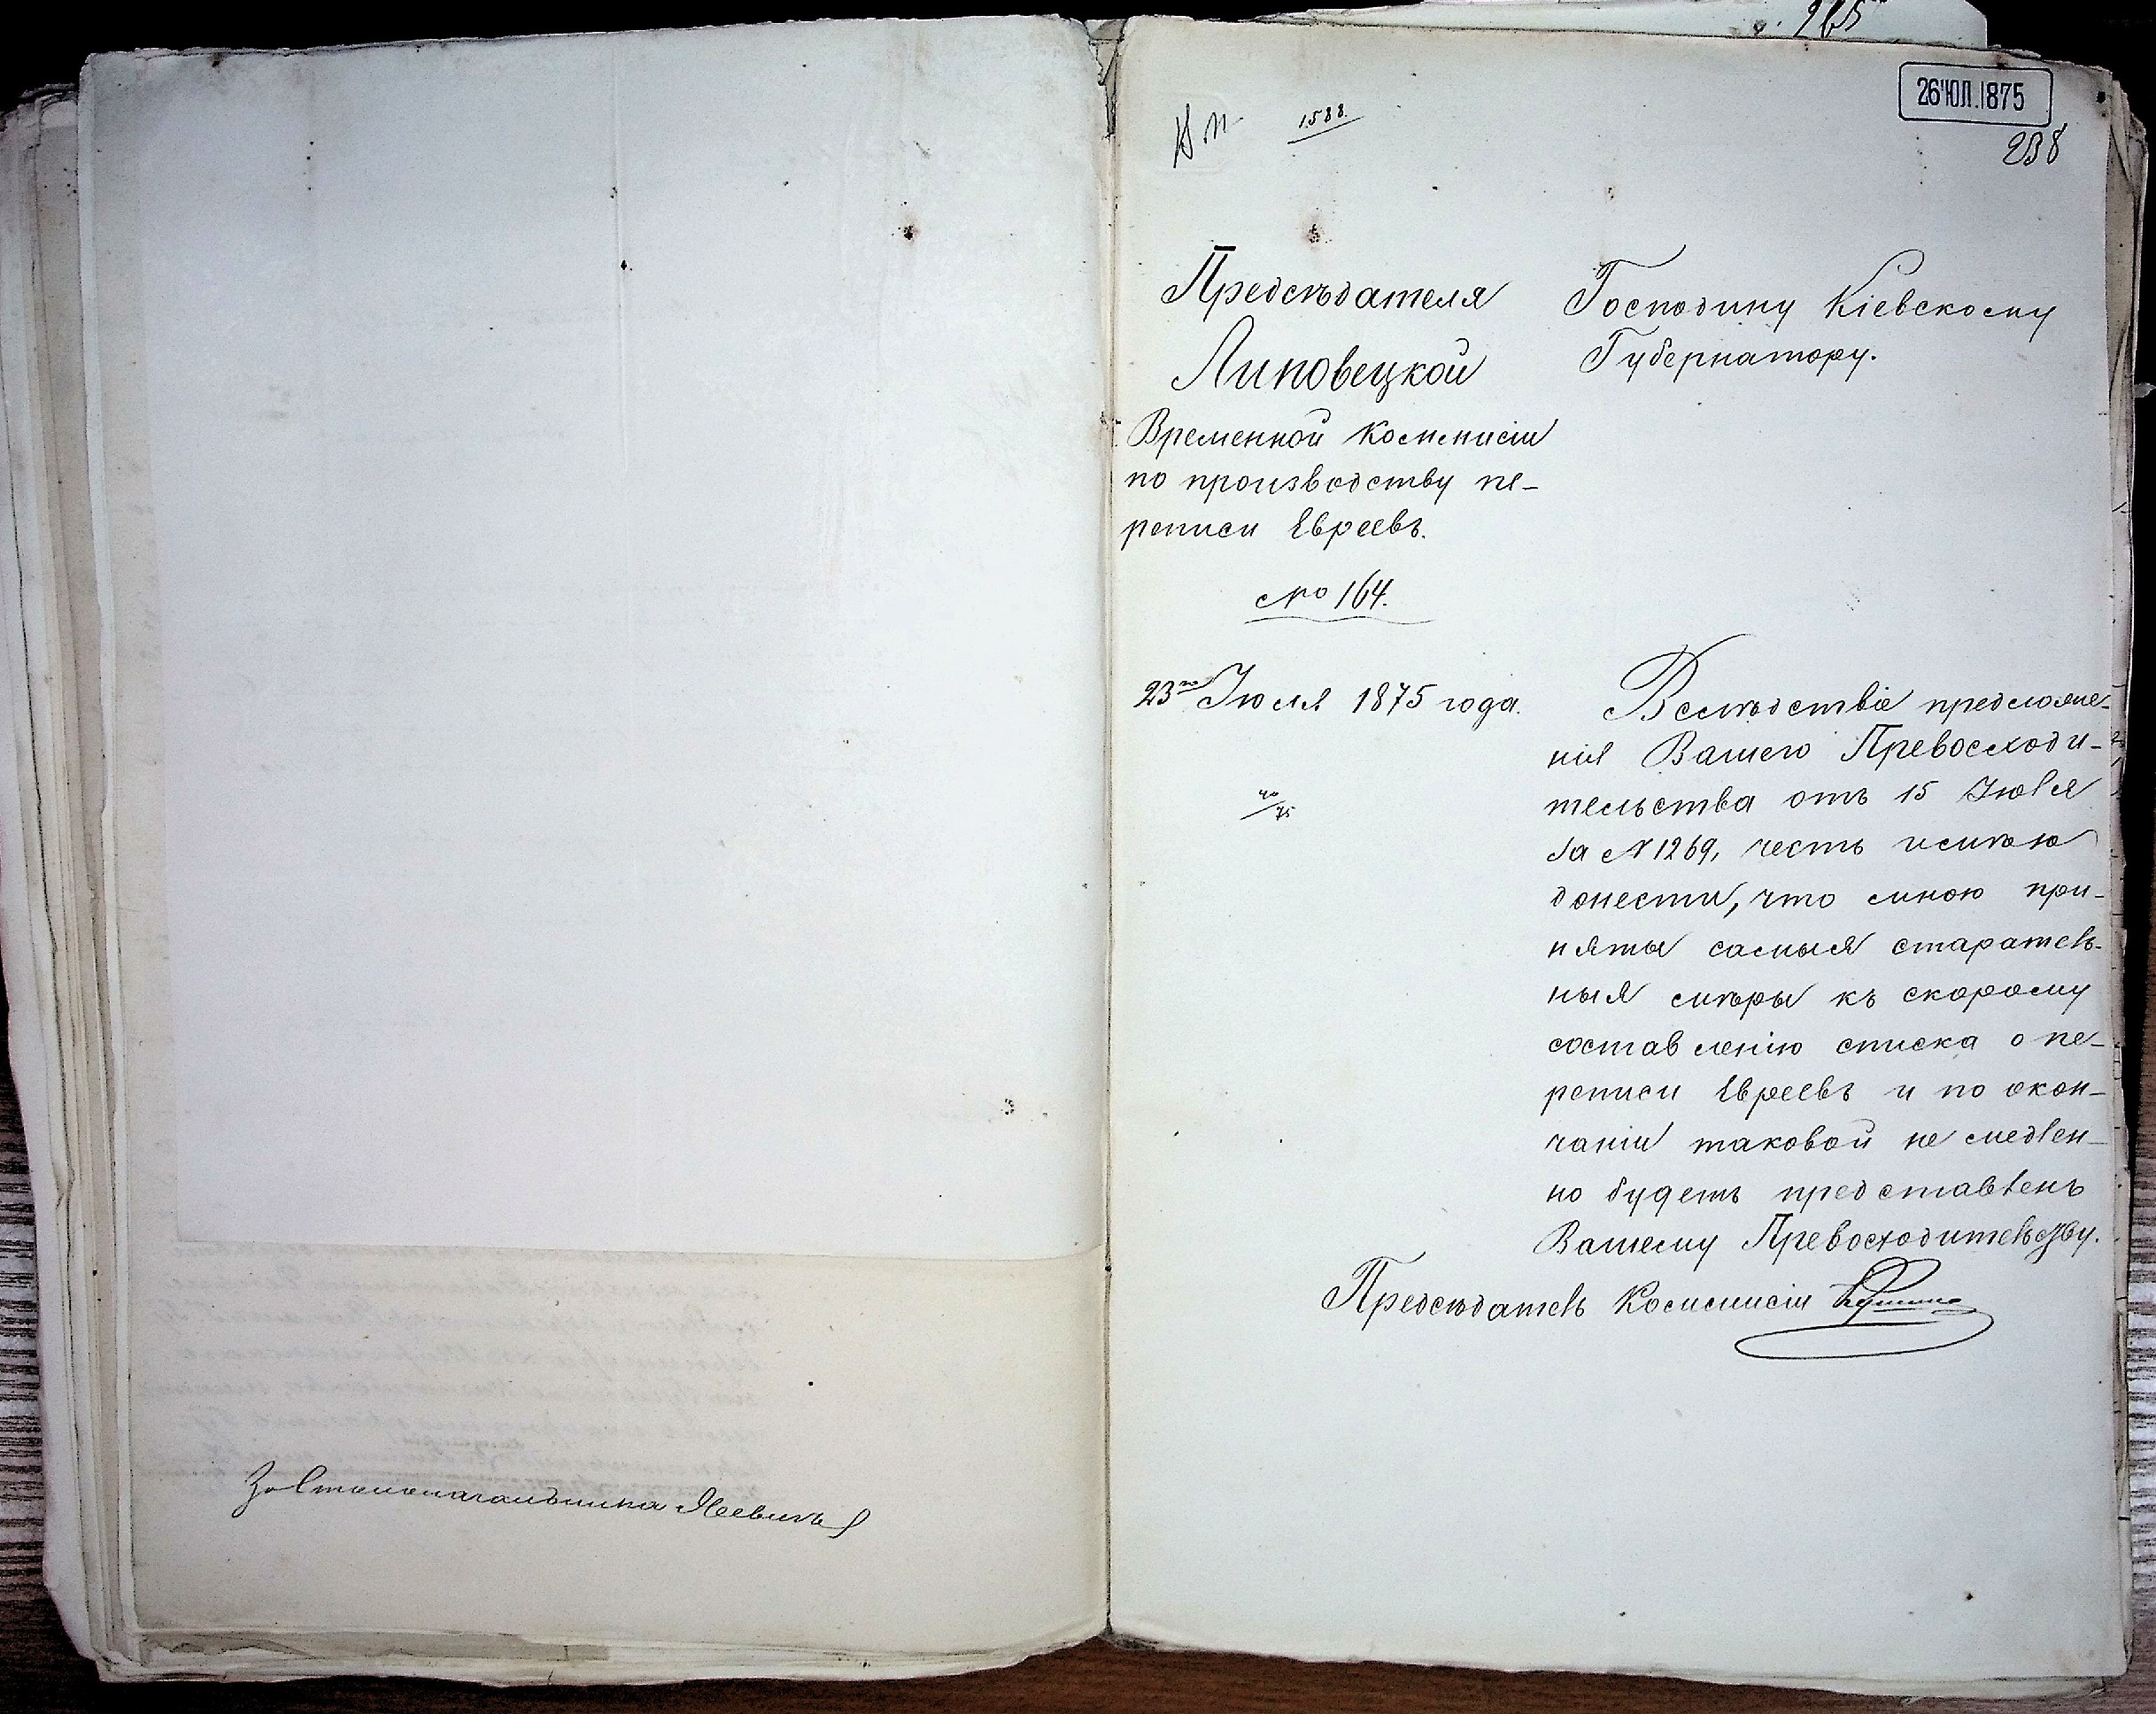 За Столоначальника
265
26 ІЮЛ. 1875
1588.
238
Предсѣдателя
Липовецкой
Временной Коммисіи
по производству пе-
реписи Евреевъ.
№ 164.
23го Іюля 1875 года.
Господину Кіевскому
Губернатору.
Вслѣдствіе предложе-
нія Вашего Превосходи-
тельства отъ 15 Іюля
за № 1269, честь имѣю
донести, что мною при-
няты самыя старатель-
ныя мѣры къ скорому
составленію списка о пе-
реписи Евреевъ и по окон-
чаніи таковой не медлен-
но будетъ представленъ
Вашему Превосходительству.
Предсѣдатель Коммисіи